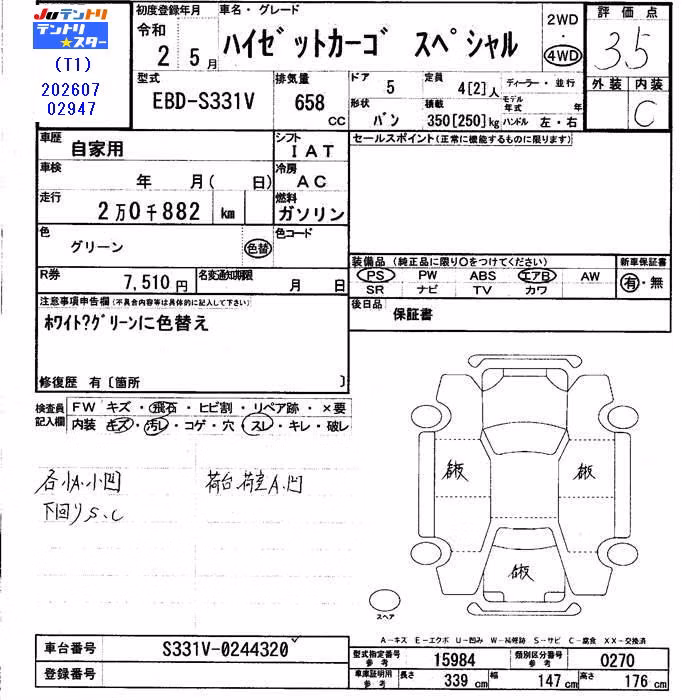 JUテントリ
テントリ
★スター
(T1)
202607
02947
初度登録年月
令和
2 5月
車名・グレード
ハイゼットカーゴ スペシャル
2WD
・
4WD
評価点
3.5
外装 内装
C
型式
EBD-S331V
排気量
658
CC
ドア
5
定員
4[2]人
ディーラー・並行
形状
バン
積載
350[250]kg
モデル年式 年
ハンドル 左・右
車歴
自家用
シフト
IAT
セールスポイント(正常に機能するものに限ります)
車検
年 月( 日)
冷房
AC
走行
2万0千882 km
燃料
ガソリン
色
グリーン
色替
色コード
R券
7,510円
名変通知期限
月 日
装備品(純正品に限り○をつけてください)
PS PW ABS エアB AW
SR ナビ TV カワ
新車保証書
有・無
後日品
保証書
注意事項申告欄(不具合内容等は具体的に記入して下さい)
ホワイト?グリーンに色替え
修復歴 有〔箇所 〕
検査員
記入欄
FW キズ・飛石・ヒビ割・リペア跡・×要
内装 キズ・汚レ・コゲ・穴・スレ・キレ・破レ
各小A.小凹
下回りS、C
荷台、荷室A.凹
看板
看板
看板
スペア
A-キズ E-エクボ U-凹み W-補修跡 S-サビ C-腐食 XX-交換済
車台番号
S331V-0244320
登録番号
型式指定番号
参考
15984
類別区分番号
参考
0270
車庫証明用
参考
長さ
339 cm
幅
147 cm
高さ
176 cm